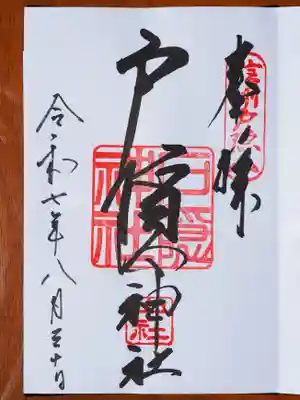 奉拝
信州戸隠
戸隠神社
戸隠神社
令和七年八月三十日